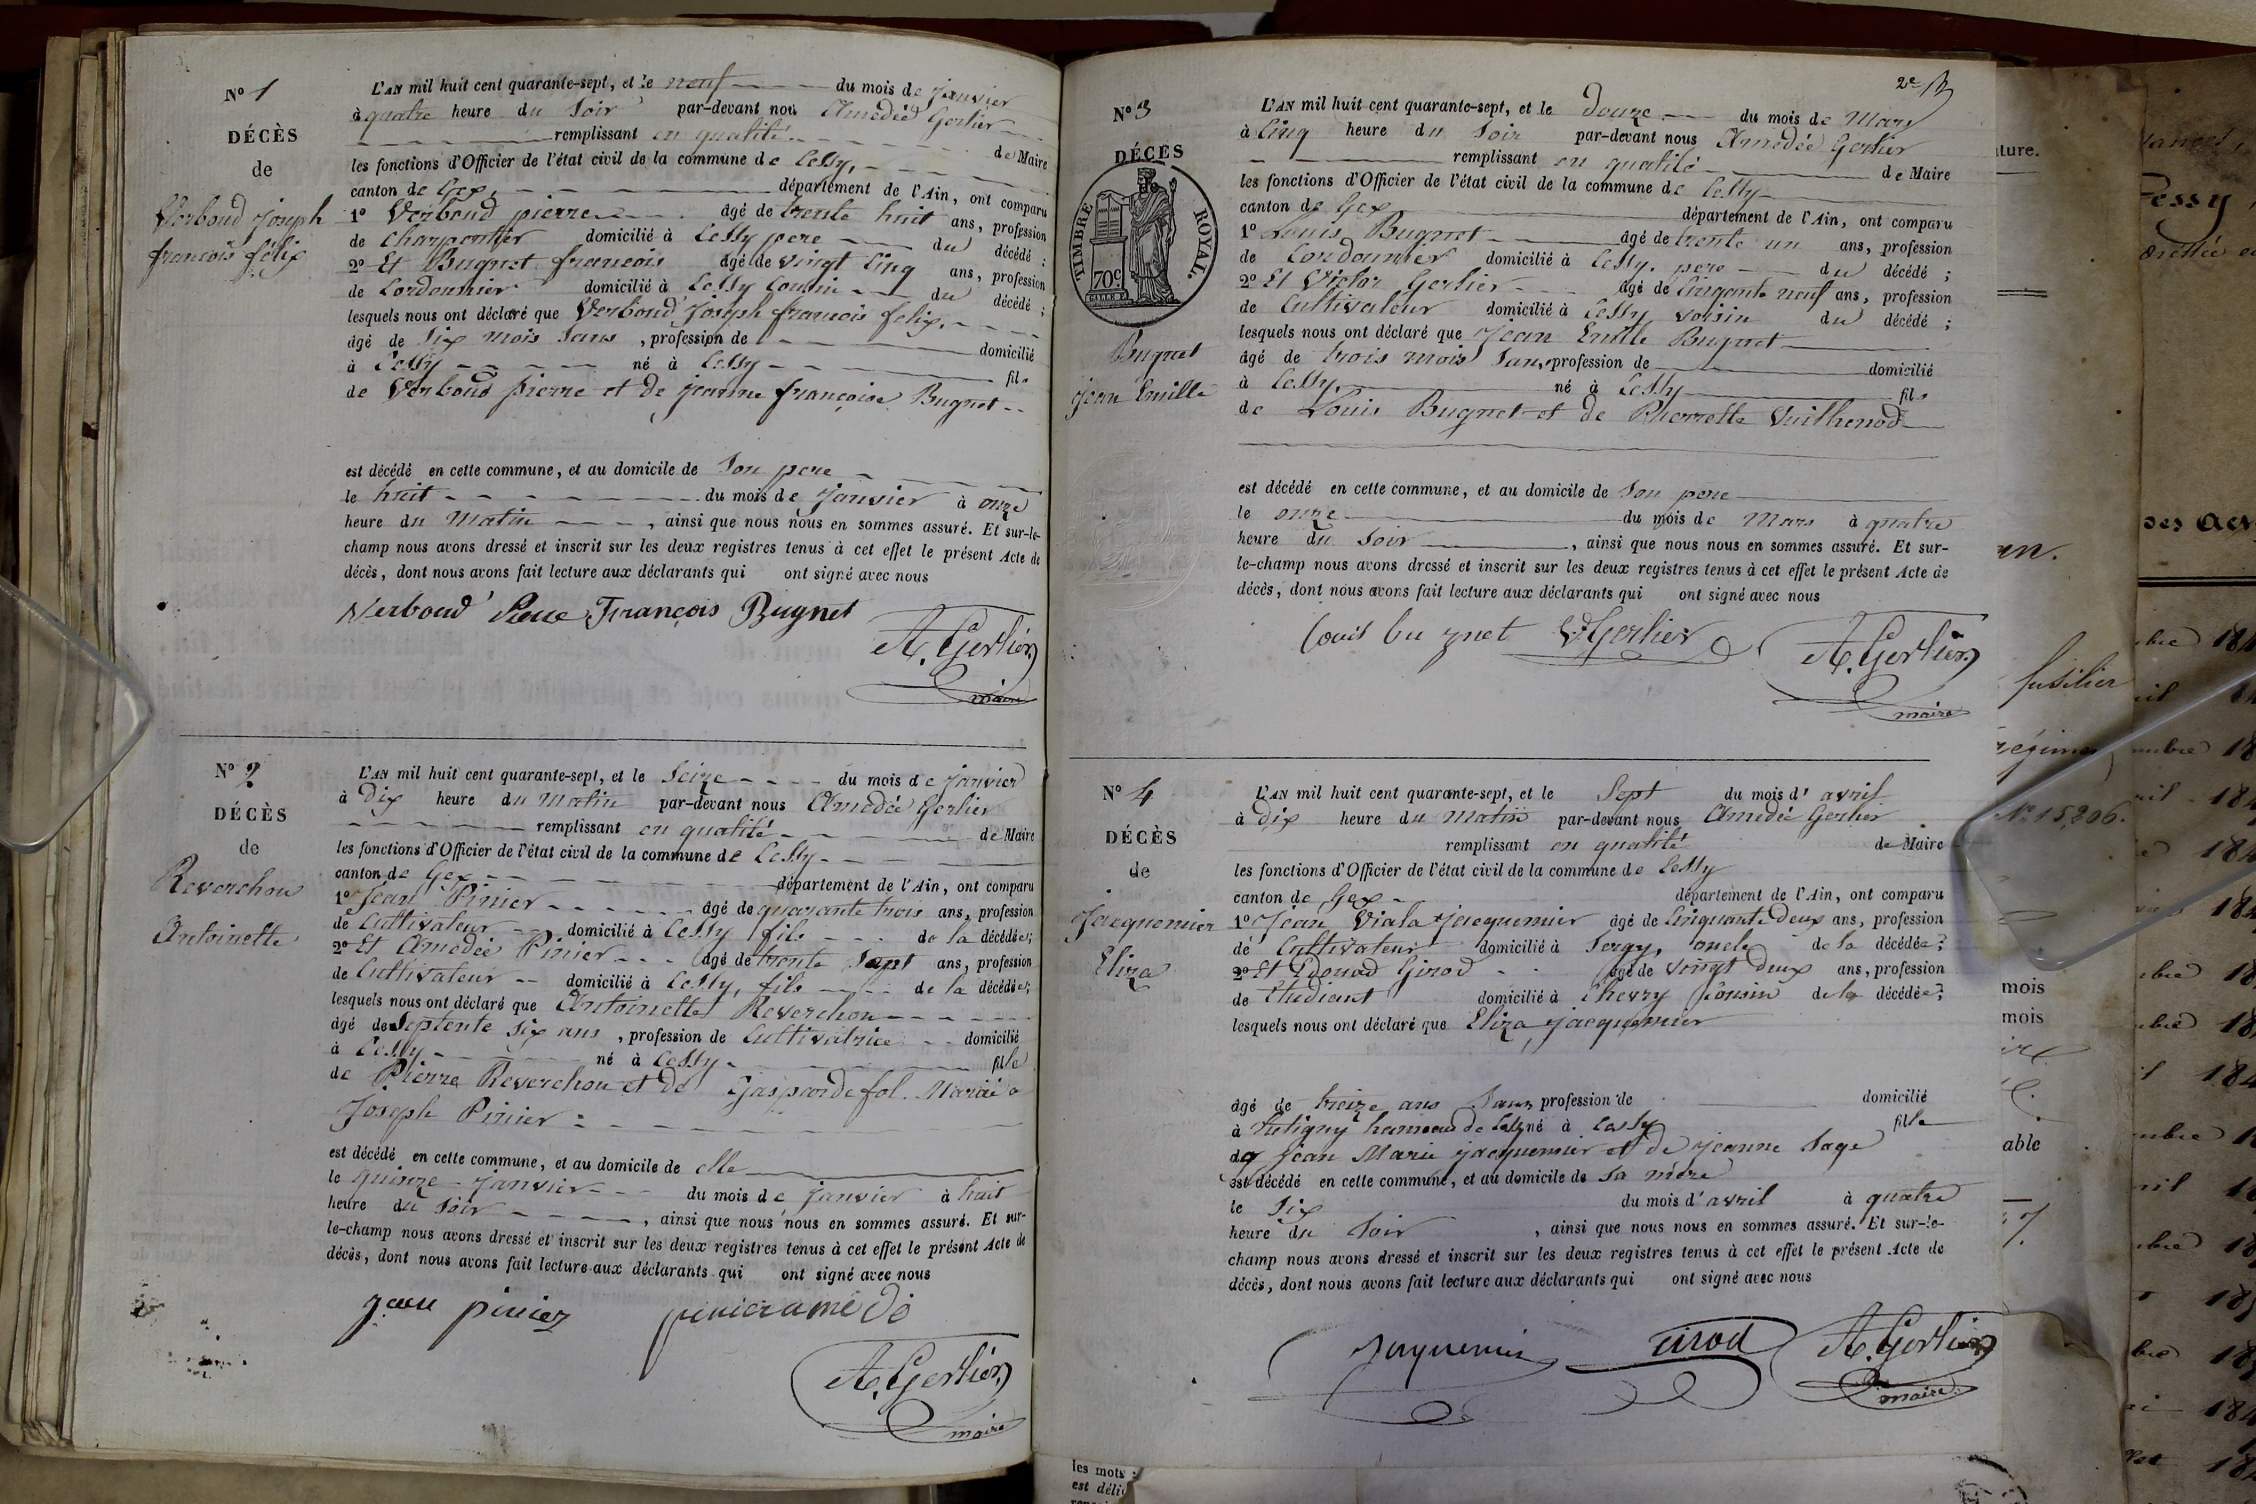 Nº 1
DÉCÈS
de
Verboud Joseph
francois félix
L'AN mil huit cent quarante-sept, et le neuf du mois de janvier
à quatre heure du Soir par-devant nou Amédée Gerlier
remplissant en qualité de Maire
les fonctions d'Officier de l'état civil de la commune de Cessy,
canton de Gex, département de l'Ain, ont comparu
1º Verboud pierre âgé de trente huit ans, profession
de charpentier domicilié à Cessy pere du décédé ;
2º Et Bugnet francois âgé de vingt Cinq ans, profession
de Cordonnier domicilié à Cessy Cousin du décédé ;
lesquels nous ont déclaré que Verboud Joseph francois felix,
âgé de Six mois Sans , profession de domicilié
à Cessy né à Cessy fils
de Verboud pierre et de jeanne françoise Bugnet
est décédé en cette commune, et au domicile de Son pere
le huit du mois de janvier à onze
heure du Matin , ainsi que nous nous en sommes assuré. Et sur-le-
champ nous avons dressé et inscrit sur les deux registres tenus à cet effet le présent Acte de
décès, dont nous avons fait lecture aux déclarants qui ont signé avec nous
Verboud Pierre François Bugnet
A. Gerlier
maire
Nº 2
DÉCÈS
de
Reverchon
Antoinette
L'AN mil huit cent quarante-sept, et le Seize du mois de janvier
à Dix heure du Matin par-devant nous Amedée Gerlier
remplissant en qualité de Maire
les fonctions d'Officier de l'état civil de la commune de Cessy
canton de Gex département de l'Ain, ont comparu
1º Jean Pinier âgé de quarante trois ans, profession
de Cultivateur domicilié à Cessy fils de la décédée;
2º Et Amedée Pinier âgé de trente Sept ans, profession
de Cultivateur domicilié à Cessy, fils de la décédée;
lesquels nous ont déclaré que Antoinette Reverchon
âgé de Septente Six ans , profession de Cultivatrice domicilié
à Cessy né à Cessy fille
de Pierre Reverchon et de Gasparde fol. Mariée a
Joseph Pinier
est décédé en cette commune, et au domicile de elle
le quinze janvier du mois de janvier à huit
heure du Soir , ainsi que nous nous en sommes assuré. Et sur-
le-champ nous avons dressé et inscrit sur les deux registres tenus à cet effet le présent Acte de
décès, dont nous avons fait lecture aux déclarants qui ont signé avec nous
jean pinier pinier amédé
A. Gerlier
maire
2e
Nº 3
DÉCÈS
TIMBRE ROYAL.
70c
Bugnet
Jean Emille
L'AN mil huit cent quarante-sept, et le Douze du mois de Mars
à Cinq heure du Soir par-devant nous Amédée Gerlier
remplissant en qualité de Maire
les fonctions d'Officier de l'état civil de la commune de Cessy
canton de Gex département de l'Ain, ont comparu
1º Louis Bugnet âgé de trente un ans, profession
de Cordonnier domicilié à Cessy. pere du décédé ;
2º Et Victor Gerlier âgé de Cinqante neuf ans, profession
de Cultivateur domicilié à Cessy voisin du décédé ;
lesquels nous ont déclaré que Jean Emille Bugnet
âgé de trois mois Sans, profession de domicilié
à Cessy, né à Cessy fils
de Louis Bugnet et de Pherrette Vuithenod
est décédé en cette commune, et au domicile de Son pere
le onze du mois de Mars à quatre
heure du Soir , ainsi que nous nous en sommes assuré. Et sur-
le-champ nous avons dressé et inscrit sur les deux registres tenus à cet effet le présent Acte de
décès, dont nous avons fait lecture aux déclarants qui ont signé avec nous
Louis bu gnet V. Gerlier A. Gerlier
maire
Nº 4
DÉCÈS
de
Jacquemier
Eliza
L'AN mil huit cent quarante-sept, et le Sept du mois d' avril
à Dix heure du Matin par-devant nous Amedée Gerlier
remplissant en qualité de Maire
les fonctions d'Officier de l'état civil de la commune de Cessy
canton de Gex département de l'Ain, ont comparu
1º Jean Viala Jacquemier âgé de Cinquante Deux ans, profession
de Cultivateur domicilié à Sergy, oncle de la décédée;
2º Et Edouad Girod âgé de vingt Deux ans, profession
de Etudiant domicilié à Chevry Cousin de la décédée;
lesquels nous ont déclaré que Eliza jacquemier
âgé de treize ans Sans profession de domicilié
à hameau de Cessy né à Cessy fille
de Jean Marie jacquemier et de jeanne Sage
est décédé en cette commune, et au domicile de Sa mère
le Six du mois d'avril à quatre
heure du Soir , ainsi que nous nous en sommes assuré. Et sur-le-
champ nous avons dressé et inscrit sur les deux registres tenus à cet effet le présent Acte de
décès, dont nous avons fait lecture aux déclarants qui ont signé avec nous
Jaquemier Girod A. Gerlier
maire
les mots
est déli
ture.
fusilier
Nº 15,206.
mois
mois
able